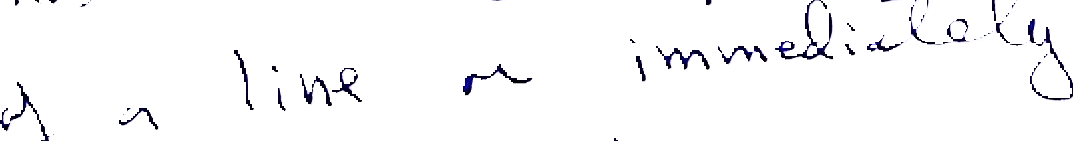 of a line or immediately